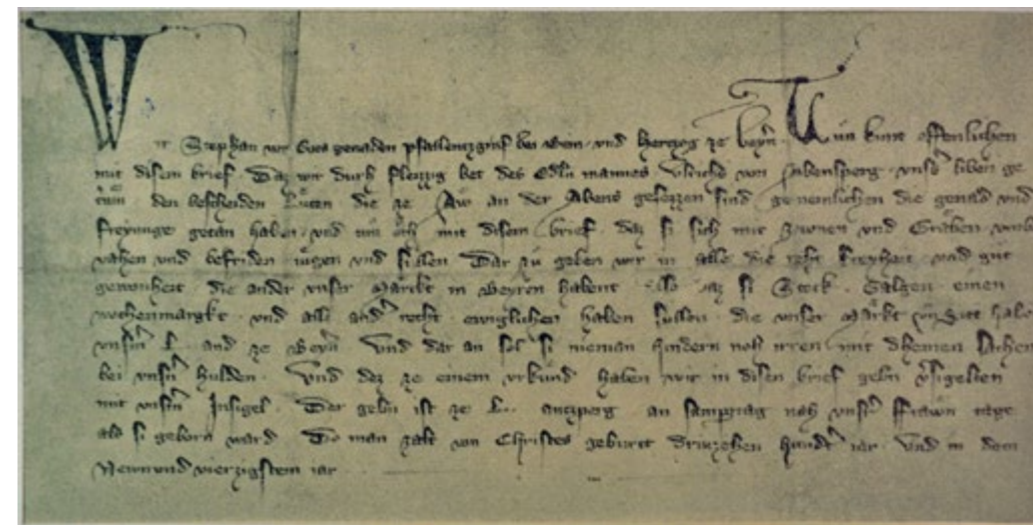 Wir Stephan von Gots genaden pfallenczgraf bei Rein und Herczog ze Beyrn Tun kunt offenlichen
mit disem brief Daz wir durch fleizzig bet des Edeln mannes Ulrichs von Abensperg unsers liben ge
den bescheiden Luten die ze Aw an der Abens gesezzen sind gemeinlichen die genad und
freyunge getan haben und mit disem brief daz si sich mit Zwnen und Graben umb
vahen und befriden mugen und sullen Dar zu geben wir in alle die reht freyheit und gut
gewonheit die ander unser Märckt in Beyren habent Also daz si Stock Galgen einen
wochenmargkt und alle ander recht ewiglichen haben sullen die unser Märkt
unserm L and ze Beyrn Und dar an sol si nieman hindern noh irren mit dheinen sachen
bei unsern hulden Und dez ze einem urkund haben wir in disen brief gebn versigelten
mit unserm Insigel Der gebn ist ze L antzperg an sampztag nah unser frawn tage
als si geborn ward Do man zalt von Christes geburtt driuzehen hundert iar und in dem
Newnundvierzigstem iar